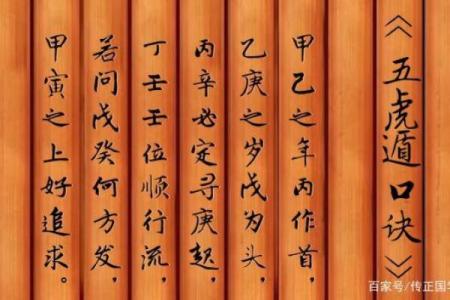 《五虎遁口诀》
甲乙之年丙作首，
乙庚之岁戊为头，
丙辛必定寻庚起，
丁壬壬位顺行流，
若问戊癸何方发，
甲寅之上好追求。
百家号/传正国